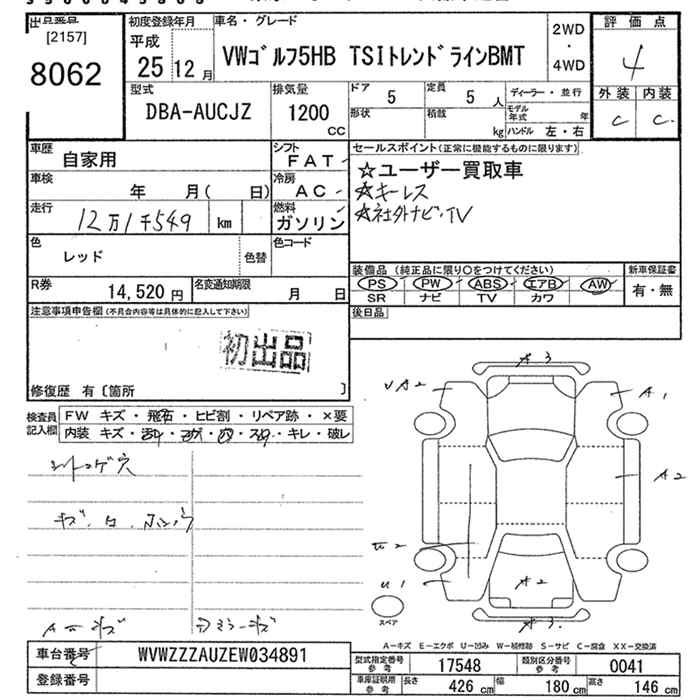 [2157]
8062
初度登録年月
平成
25 12月
車名・グレード
VWゴルフ5HB TSIトレンドラインBMT
2WD
・
4WD
評価点
4
外装 内装
C C
型式
DBA-AUCJZ
排気量
1200
CC
ドア 5
定員 5 人
形状
積載 kg
ディーラー・並行
モデル年式 年
ハンドル 左・右
車歴
自家用
シフト
FAT
車検
年 月( 日)
冷房
AC
走行
12万1千549 km
燃料
ガソリン
セールスポイント(正常に機能するものに限ります)
☆ユーザー買取車
☆キーレス
☆社外ナビ・TV
色
レッド
色替
色コード
R券
14,520 円
名変通知期限
月 日
装備品 (純正品に限り○をつけてください)
PS PW ABS エアB AW
SR ナビ TV カワ
新車保証書
有・無
後日品
注意事項申告欄 (不具合内容等は具体的に記入して下さい)
初出品
修復歴 有〔箇所 〕
検査員記入欄
FW キズ・飛石・ヒビ割・リペア跡・×要
内装 キズ・キレ・破レ
シートコゲ穴
A3
A2
A1
A2
A2
U1
A3
スペア
A-キズ E-エクボ U-凹み W-補修跡 S-サビ C-腐食 XX-交換済
車台番号 WVWZZZAUZEW034891
登録番号
型式指定番号 参考 17548
類別区分番号 参考 0041
車庫証明用 参考 長さ 426 cm 幅 180 cm 高さ 146 cm